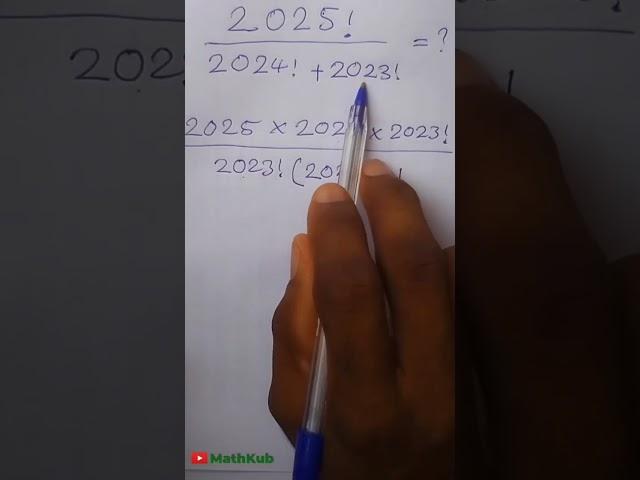 2025!
2024! + 2023! = ?
2025 × 202 × 2023!
2023! (202
MathKub